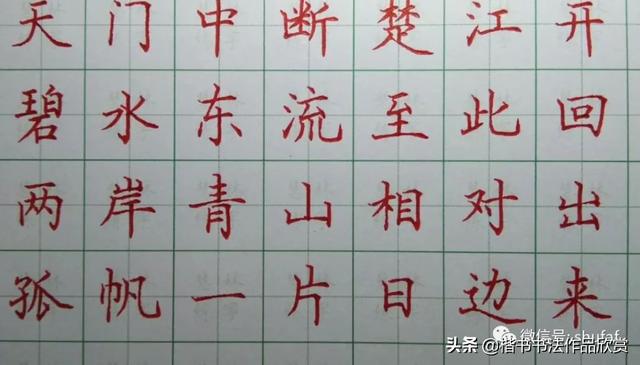 天门中断楚江开
碧水东流至此回
两岸青山相对出
孤帆一片日边来
微信号: shufaf
头条 @楷书书法作品欣赏